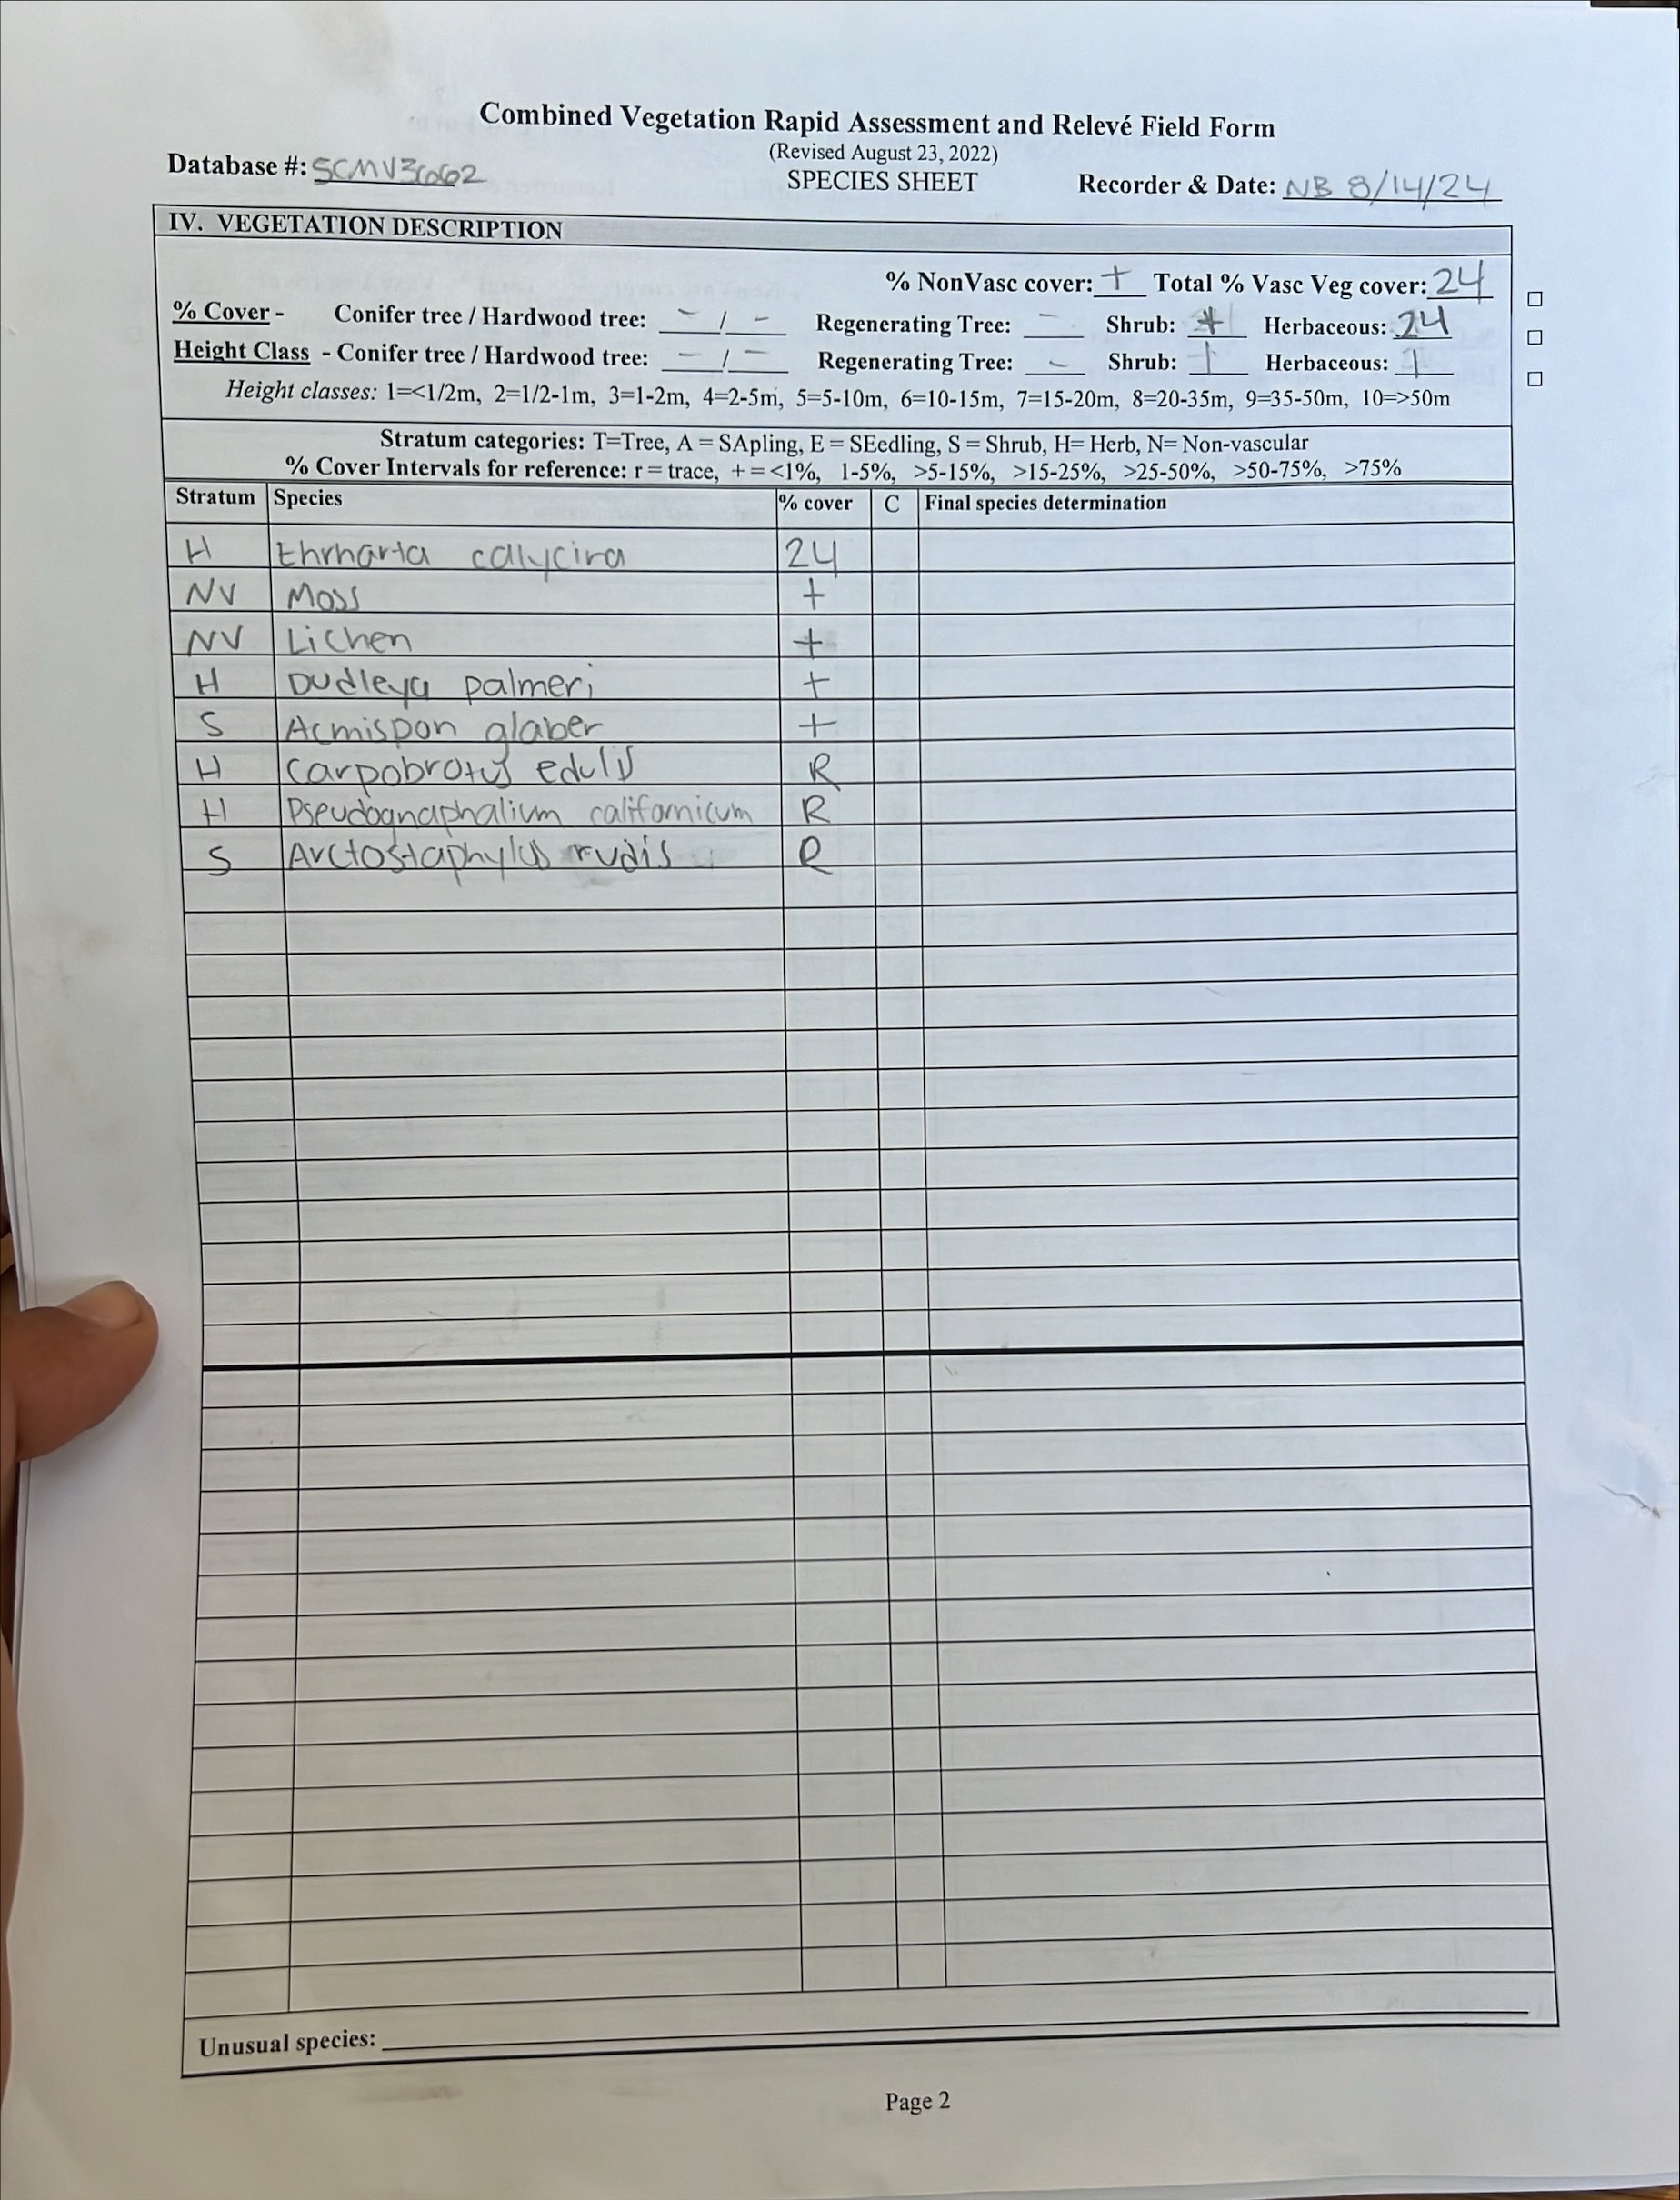 Combined Vegetation Rapid Assessment and Relevé Field Form
(Revised August 23, 2022)
Database #: SCMV3
SPECIES SHEET
Recorder & Date: NB 8/14/24
IV. VEGETATION DESCRIPTION
% NonVasc cover: + Total % Vasc Veg cover: 24
% Cover - Conifer tree / Hardwood tree: - / - Regenerating Tree: - Shrub: + Herbaceous: 24
Height Class - Conifer tree / Hardwood tree: - / - Regenerating Tree: - Shrub: Herbaceous:
Height classes: 1=<1/2m, 2=1/2-1m, 3=1-2m, 4=2-5m, 5=5-10m, 6=10-15m, 7=15-20m, 8=20-35m, 9=35-50m, 10=>50m
Stratum categories: T=Tree, A = SApling, E = SEedling, S = Shrub, H= Herb, N= Non-vascular
% Cover Intervals for reference: r = trace, + = <1%, 1-5%, >5-15%, >15-25%, >25-50%, >50-75%, >75%
Stratum Species % cover C Final species determination
H Ehrharta calycina 24
NV Moss +
NV Lichen +
H Dudleya palmeri +
S Acmispon glaber +
H Carpobrotus edulis R
H Pseudognaphalium californicum R
S Arctostaphylus rudis R
Unusual species:
Page 2